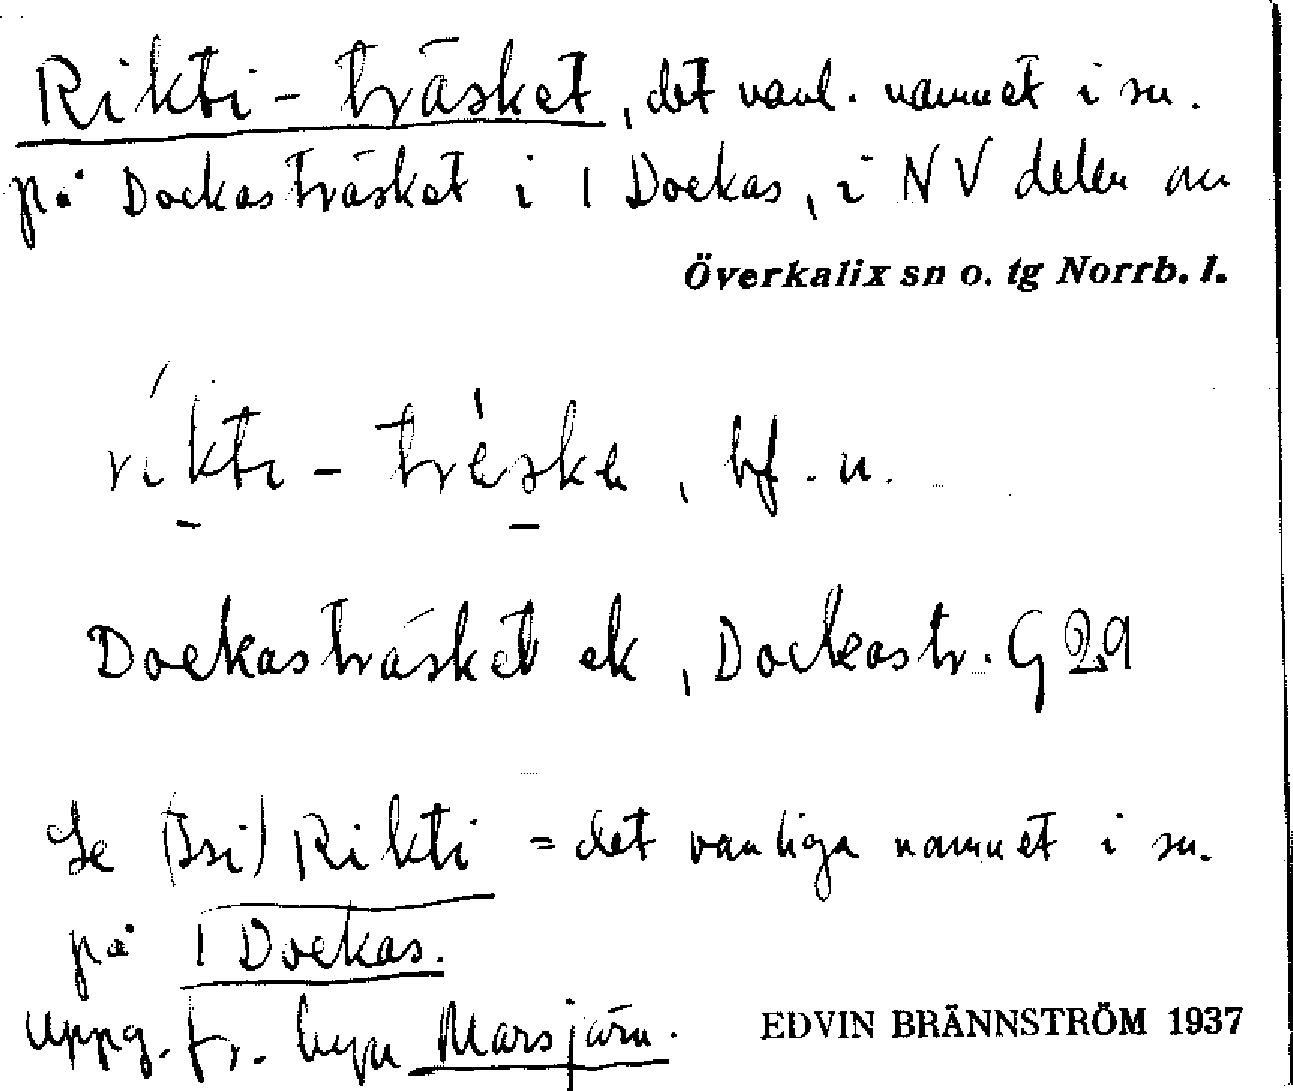 Rikti-träsket, det vanl. namnet i sn.
på Dockasträsket i 1 Dockas, i NV delen av
Överkalix sn o. tg Norrb. l.
rikti-trèske, bf. n.
Dockasträsket ek, Dockastr. G 29
Se Rikti = det vanliga namnet i sn.
på 1 Dockas.
Uppg. fr. byn Marsjärn.
EDVIN BRÄNNSTRÖM 1937